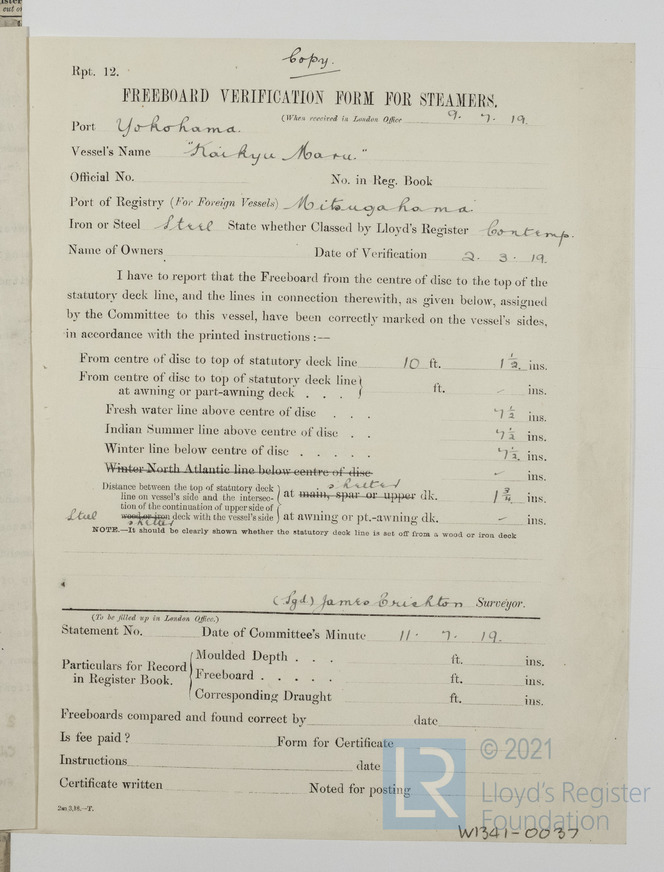 Copy.
Rpt. 12.
FREEBOARD VERIFICATION FORM FOR STEAMERS.
(When received in London Office 9. 7. 19.
Port Yokohama.
Vessel's Name "Kaikyu Maru."
Official No. No. in Reg. Book
Port of Registry (For Foreign Vessels) Mitsugahama
Iron or Steel Steel State whether Classed by Lloyd's Register Contemp.
Name of Owners Date of Verification 2. 3. 19.
I have to report that the Freeboard from the centre of disc to the top of the
statutory deck line, and the lines in connection therewith, as given below, assigned
by the Committee to this vessel, have been correctly marked on the vessel's sides,
in accordance with the printed instructions :—
From centre of disc to top of statutory deck line 10 ft. 1 1/2 ins.
From centre of disc to top of statutory deck line
at awning or part-awning deck . . . ft. - ins.
Fresh water line above centre of disc . . . 7 1/2 ins.
Indian Summer line above centre of disc . . 7 1/2 ins.
Winter line below centre of disc . . . . . 7 1/2 ins.
Winter North Atlantic line below centre of disc - ins.
Distance between the top of statutory deck
line on vessel's side and the intersec-
tion of the continuation of upper side of
Steel wood or iron deck with the vessel's side
shelter
shelter
at main, spar or upper dk. 1 3/4 ins.
at awning or pt.-awning dk. - ins.
NOTE.—It should be clearly shown whether the statutory deck line is set off from a wood or iron deck
(Sgd) James Crichton Surveyor.
(To be filled up in London Office.)
Statement No. Date of Committee's Minute 11. 7. 19.
Particulars for Record
in Register Book.
Moulded Depth . . . ft. ins.
Freeboard . . . . . ft. ins.
Corresponding Draught ft. ins.
Freeboards compared and found correct by date
Is fee paid ? Form for Certificate
Instructions date
Certificate written Noted for posting
2m 3,18.—T.
LR
© 2021
Lloyd's Register
Foundation
W1341-0037